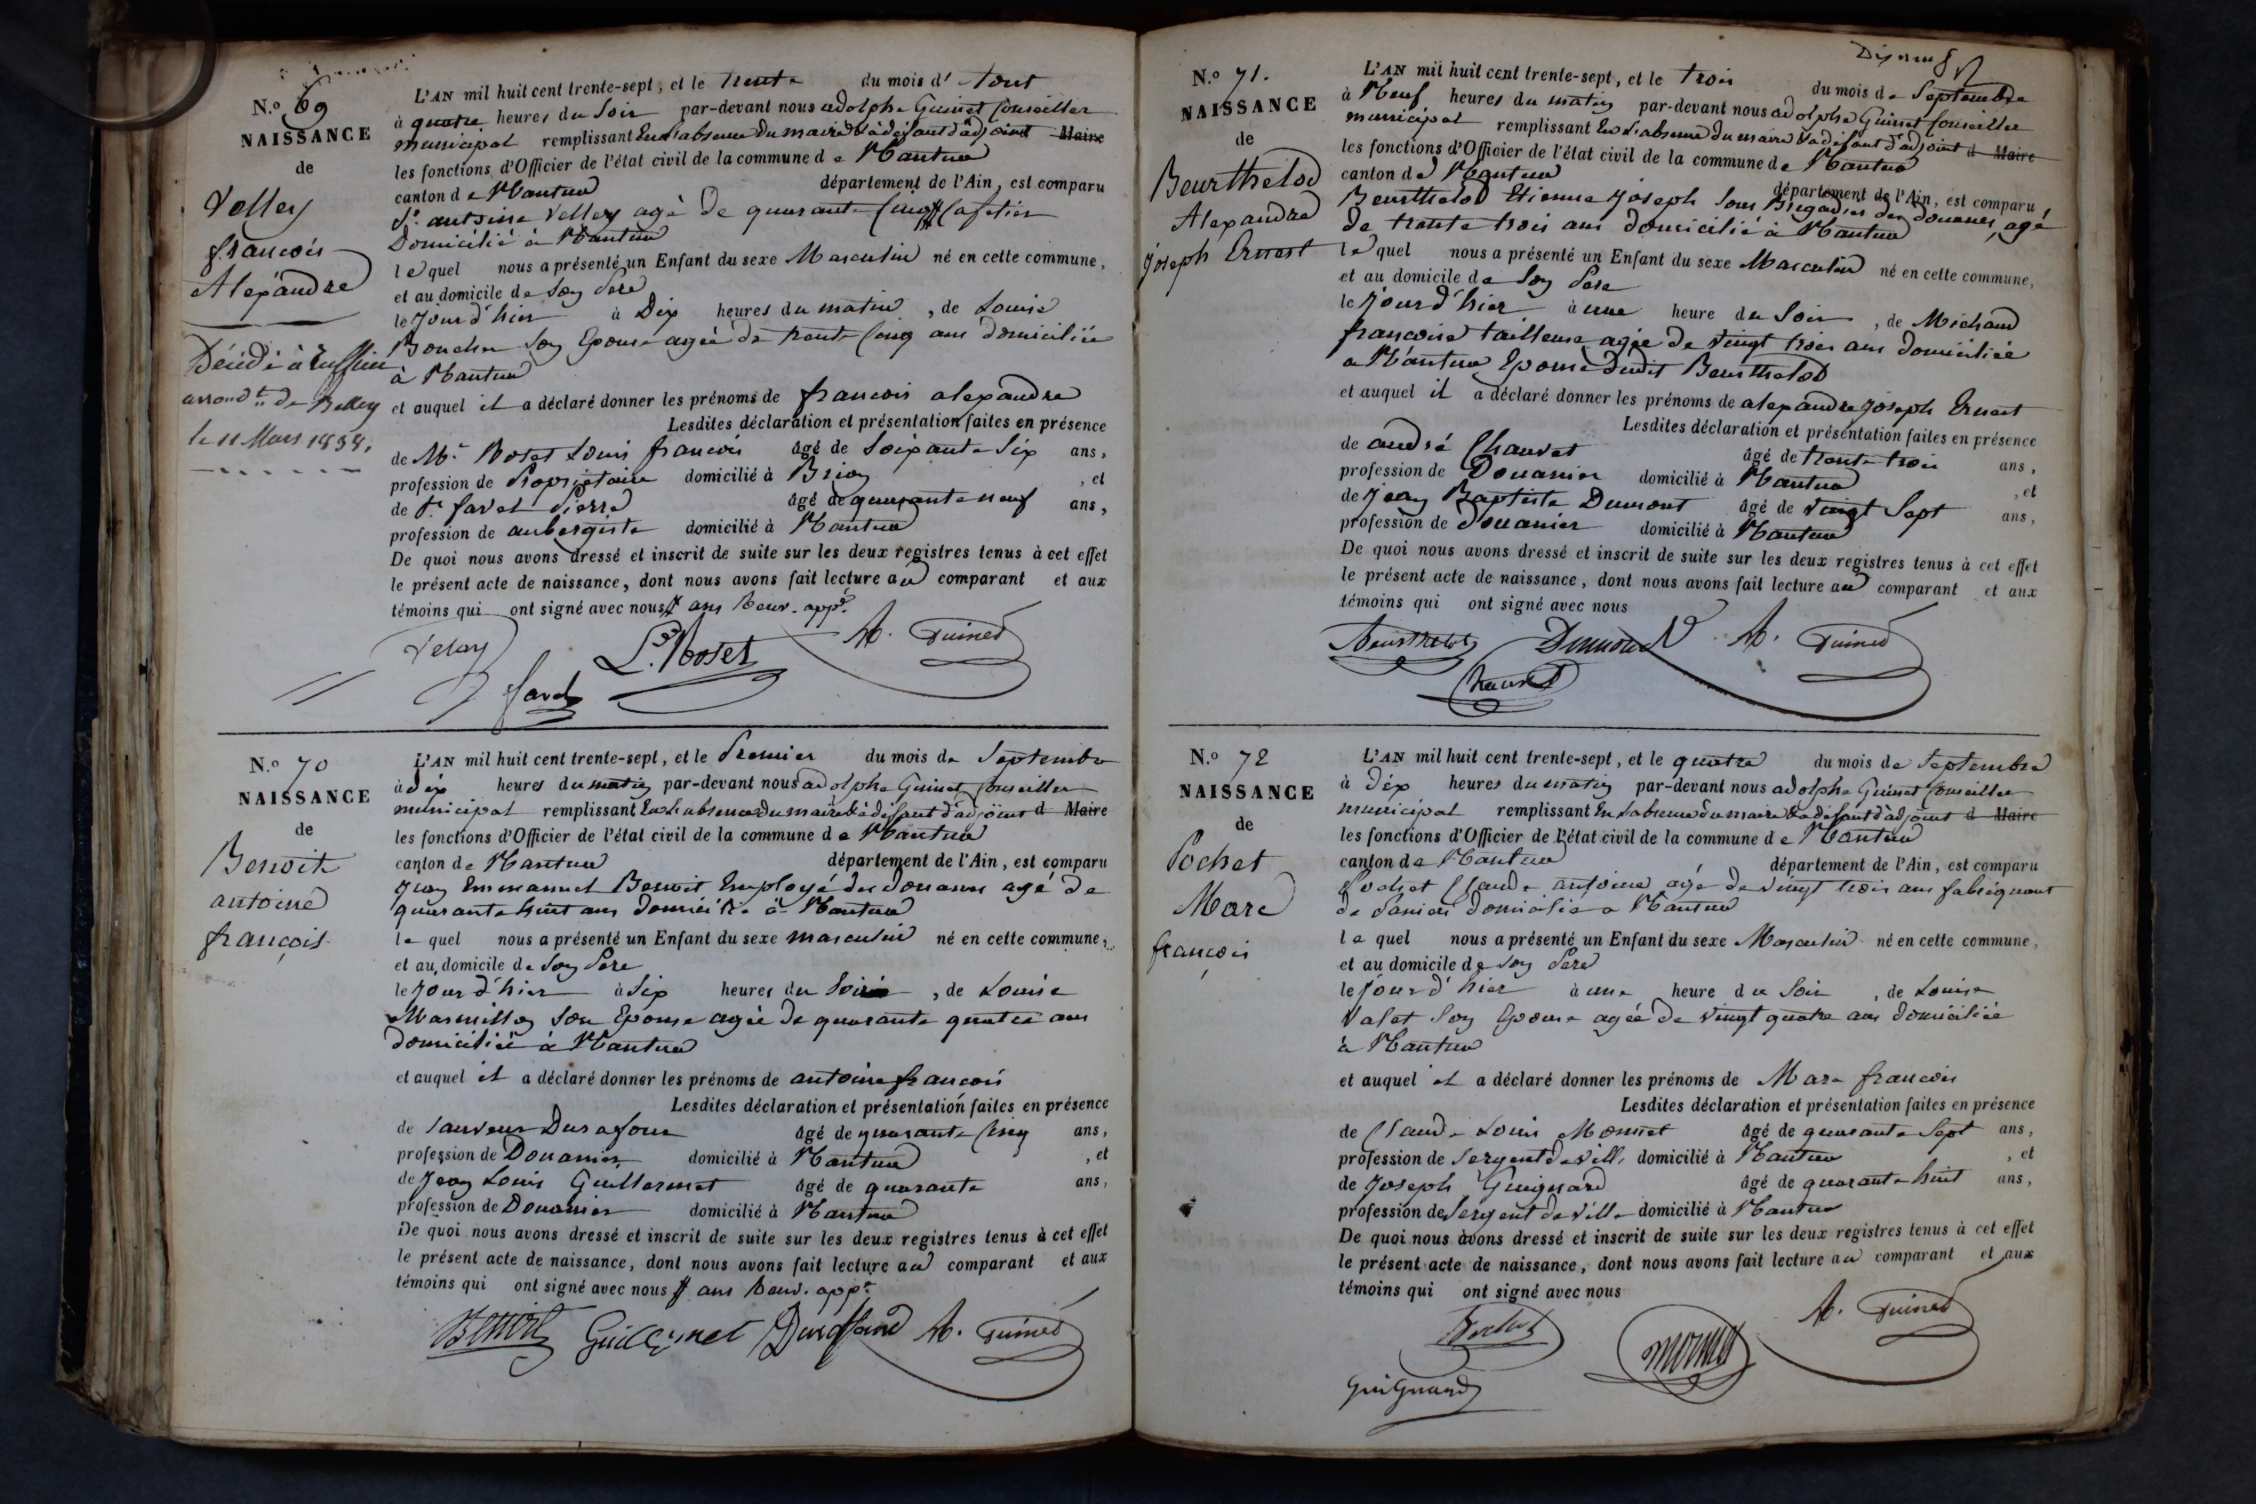 N.º 69
NAISSANCE
de
Velley
françois
Alexandre
Décédé à
arrond.t de Belley
le 11 Mars 1838.
L'AN mil huit cent trente-sept, et le trente du mois d'Aout
à quatre heures du Soir par-devant nous adolphe Guinet Conseiller
municipal remplissant En l'absence du maire & à défaut d'adjoint Maire
les fonctions d'Officier de l'état civil de la commune de Nantua
canton de Nantua département de l'Ain, est comparu
Sr. antoine Velley agé de quarante Cinq Cafetier
Domicilié à Nantua
lequel nous a présenté un Enfant du sexe Masculin né en cette commune,
et au domicile de son Pere
le Jour d'hier à Dix heures du matin, de Louise
son Epouse agée de trente Cinq ans domiciliée
à Nantua
et auquel il a déclaré donner les prénoms de françois alexandre
Lesdites déclaration et présentation faites en présence
de Mr. Rosset Louis françois âgé de Soixante Six ans,
profession de Propriétaire domicilié à Brion, et
de Sr. favet Pierre âgé de quarante neuf ans,
profession de aubergiste domicilié à Nantua
De quoi nous avons dressé et inscrit de suite sur les deux registres tenus à cet effet
le présent acte de naissance, dont nous avons fait lecture au comparant et aux
témoins qui ont signé avec nous
Velay L. Rosset A. Guinet
favet
N.º 70
NAISSANCE
de
Benoit
antoine
françois.
L'AN mil huit cent trente-sept, et le Premier du mois de Septembre
à dix heures du matin par-devant nous adolphe Guinet Conseiller
municipal remplissant En l'absence du maire & à défaut d'adjoint d Maire
les fonctions d'Officier de l'état civil de la commune de Nantua
canton de Nantua département de l'Ain, est comparu
Jean Emmanuel Benoit Employé des douanes agé de
quarante huit ans domicilié à Nantua
lequel nous a présenté un Enfant du sexe masculin né en cette commune,
et au domicile de son Pere
le Jour d'hier à Six heures du Soir, de Louise
Marmillon son Epouse agée de quarante quatre ans
domiciliée à Nantua
et auquel il a déclaré donner les prénoms de antoine françois
Lesdites déclaration et présentation faites en présence
de Sauveur Durafour âgé de quarante Cinq ans,
profession de Douanier domicilié à Nantua, et
de Jean Louis Guillermet âgé de quarante ans,
profession de Douanier domicilié à Nantua
De quoi nous avons dressé et inscrit de suite sur les deux registres tenus à cet effet
le présent acte de naissance, dont nous avons fait lecture au comparant et aux
témoins qui ont signé avec nous
Benoit Guillermet Duraffour A. Guinet
Dix neuf
N.º 71.
NAISSANCE
de
Beurthelod
Alexandre
Joseph Ernest
L'AN mil huit cent trente-sept, et le trois du mois de Septembre
à Neuf heures du matin par-devant nous adolphe Guinet Conseiller
municipal remplissant En l'absence du maire & à défaut d'adjoint d Maire
les fonctions d'Officier de l'état civil de la commune de Nantua
canton de Nantua département de l'Ain, est comparu
Beurthelod Etienne Joseph Sous Brigadier des douanes, agé
de trente trois ans domicilié à Nantua
lequel nous a présenté un Enfant du sexe Masculin né en cette commune,
et au domicile de Son Pere
le Jour d'hier à une heure du Soir, de Michaud
françoise tailleuse agée de vingt trois ans domiciliée
a Nantua Epouse dudit Beurthelod
et auquel il a déclaré donner les prénoms de alexandre Joseph Ernest
Lesdites déclaration et présentation faites en présence
de andré Chauvet âgé de trente trois ans,
profession de Douanier domicilié à Nantua, et
de Jean Baptiste Dumont âgé de vingt Sept ans,
profession de Douanier domicilié à Nantua
De quoi nous avons dressé et inscrit de suite sur les deux registres tenus à cet effet
le présent acte de naissance, dont nous avons fait lecture au comparant et aux
témoins qui ont signé avec nous
Beurthelod Dumont A. Guinet
Chauvet
N.º 72
NAISSANCE
de
Pochet
Marc
françois
L'AN mil huit cent trente-sept, et le quatre du mois de Septembre
à dix heures du matin par-devant nous adolphe Guinet Conseiller
municipal remplissant En l'absence du maire & à défaut d'adjoint d Maire
les fonctions d'Officier de l'état civil de la commune de Nantua
canton de Nantua département de l'Ain, est comparu
Pochet Claude antoine agé de vingt trois ans fabriquant
de Paniers domicilié a Nantua
lequel nous a présenté un Enfant du sexe Masculin né en cette commune,
et au domicile de son Pere
le Jour d'hier à une heure du Soir, de Louise
Valet Son Epouse agée de vingt quatre ans domiciliée
à Nantua
et auquel il a déclaré donner les prénoms de Marc françois
Lesdites déclaration et présentation faites en présence
de Claude Louis Monnet âgé de quarante Sept ans,
profession de Sergent de ville domicilié à Nantua, et
de Joseph Guignard âgé de quarante huit ans,
profession de Sergent de ville domicilié à Nantua
De quoi nous avons dressé et inscrit de suite sur les deux registres tenus à cet effet
le présent acte de naissance, dont nous avons fait lecture au comparant et aux
témoins qui ont signé avec nous
Pochet monnet A. Guinet
Guignard